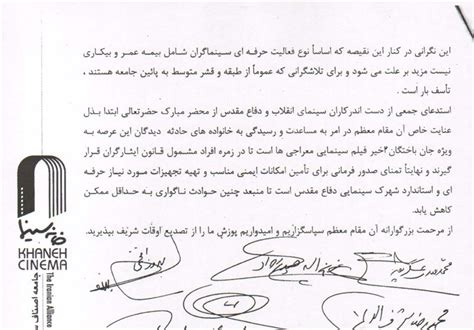 این نگرانی در کنار این نقیصه که اساساً نوع فعالیت حرفه ای سینماگران شامل بیمه عمر و بیکاری
نیست مزید بر علت می شود و برای تلاشگرانی که عموماً از طبقه و قشر متوسط به پائین جامعه هستند ،
تأسف بار است .
استدعای جمعی از دست اندرکاران سینمای انقلاب و دفاع مقدس از محضر مبارک حضرتعالی ابتدا بذل
عنایت خاص آن مقام معظم در امر به مساعدت و رسیدگی به خانواده های حادثه دیدگان این عرصه به
ویژه جان باختگان اخیر فیلم سینمایی معراجی ها است تا در زمره افراد مشمول قانون ایثارگران قرار
گیرند و نهایتاً تمنای صدور فرمانی برای تأمین امکانات ایمنی مناسب و تهیه تجهیزات مورد نیاز حرفه
ای و استاندارد شهرک سینمایی دفاع مقدس است تا منبعد چنین حوادث ناگواری به حداقل ممکن
کاهش یابد.
از مرحمت بزرگوارانه آن مقام معظم سپاسگزاریم و امیدواریم پوزش ما را از تصدیع اوقات شریف بپذیرید.
خانه سینما
KHANEH
CINEMA
The Iranian Alliance
جامعه اصناف